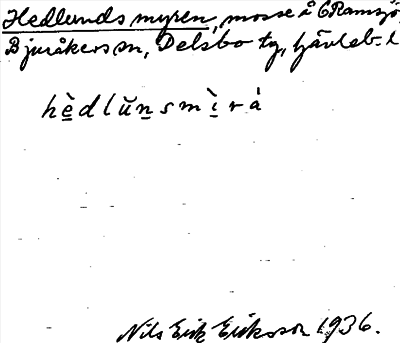 Hedlundsmyren, mosse å Ramsjö,
Bjuråkers sn, Delsbo tg, Gävleb. l
hèdlŭnsmìrà
Nils Erik Eriksson 1936.